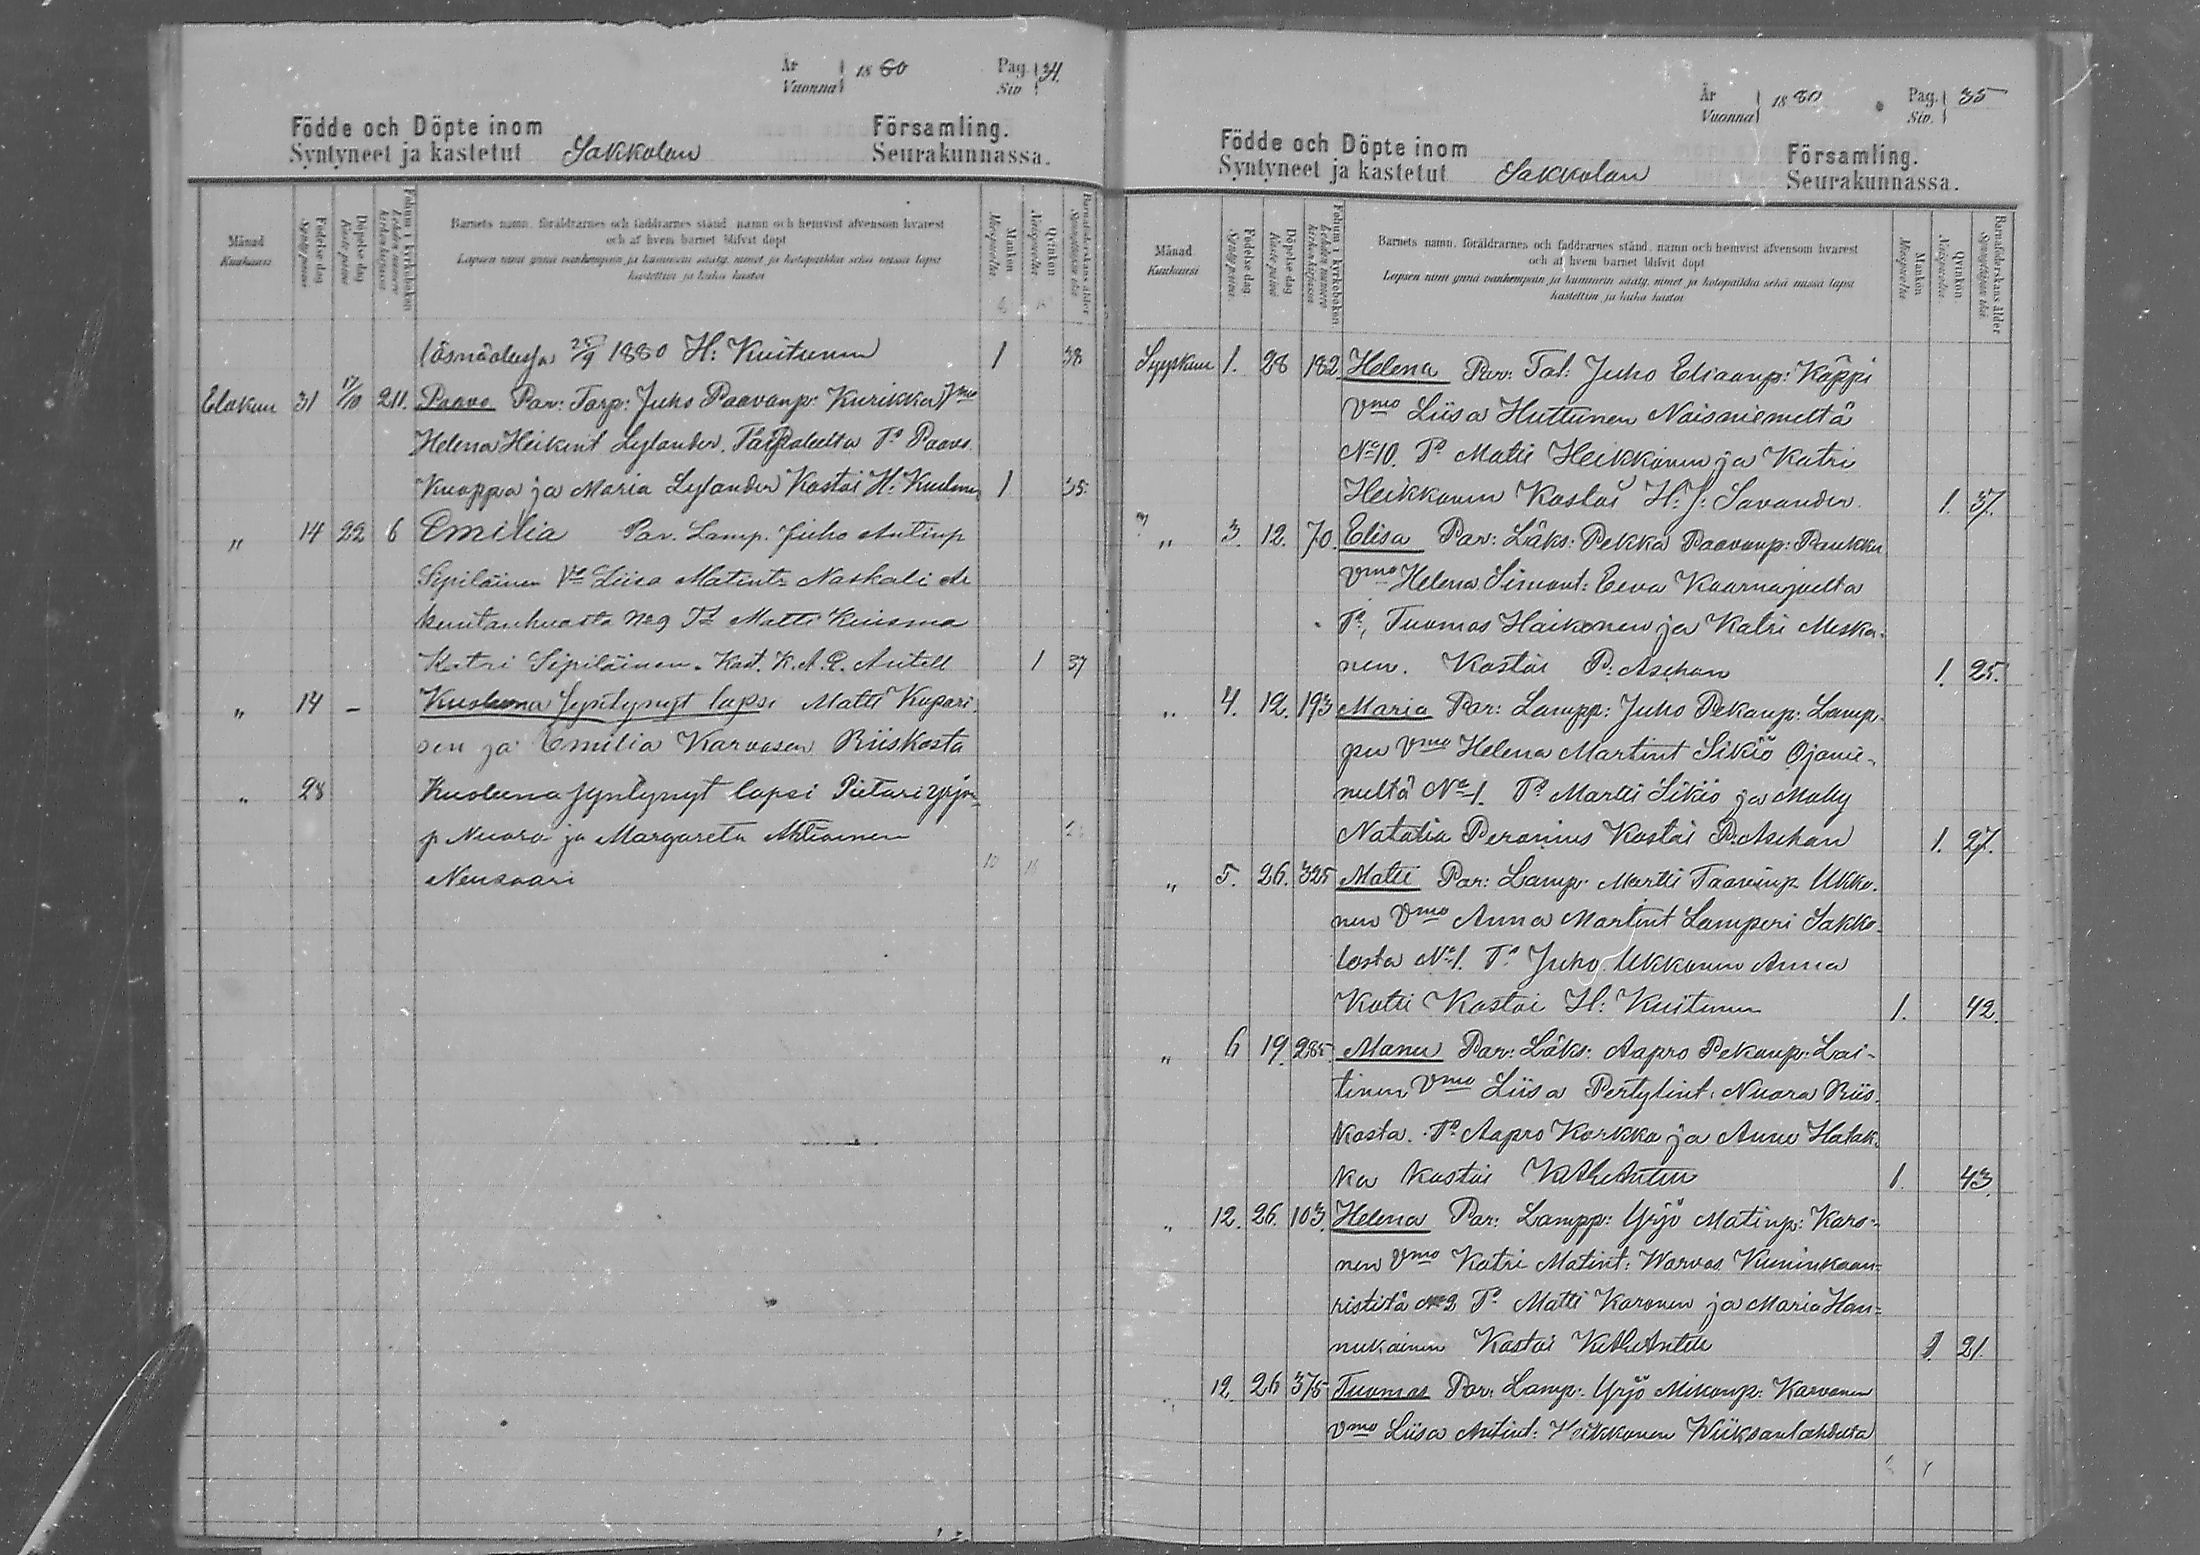 År
Vuonna 1880 Pag. Siv 34.
Födde och Döpte inom Församling.
Syntyneet ja kastetut Sakkolan Seurakunnassa.
Månad
Kuukausi
Födelse dag
Syntympäivä
Döpelse dag
Kaste päivä
Folium i kyrkoboken
Lehden numero kirkonkirjassa
Barnets namn, föräldrarnes och faddrarnes stånd, namn och hemvist äfvensom hvarest
och af hvem barnet blifvit döpt
Lapsen nimi ynnä vanhempain ja kummien sääty, nimet ja kotopaikka sekä missä lapsi
kastettiin ja kuka kastoi
Mankön
Miespuolta
Qvinkön
Naispuolta
Barnaföderskans ålder
Synnyttäjän ikä
25/9 1880 H: Kuitunen 1 38
Elokuu 31 17/10 211. Paavo Par: Torp: Juho Paavonp: Kurikka Vmo
Helena Heikint Lylander. To Paavo
Kuoppa ja Maria Lylander Kastoi H: 1 35.
" 14 22 6 Emilia Par. Lamp. Juho Antinp
Sipiläinen Vo Liisa Matint: Naskali Ar
kuntanhuasta No 9 To Matti Kiuisma
Katri Sipiläinen. Kast. K. A. R. Antell 1 37
" 14 – Kuolluna syntynyt lapsi Matti Kupari-
sen ja Emilia Karvosen Riiskasta
" 28 Kuoleena syntynyt lapsi Pietari Yrjön
p Nuora ja Margareta Ahtiainen
Neusaari
År
Vuonna 1880 Pag. Siv. 35
Födde och Döpte inom Församling.
Syntyneet ja kastetut Sakkolan Seurakunnassa.
Månad
Kuukausi
Födelse dag
Syntympäivä
Döpelse dag
Kaste päivä
Folium i kyrkoboken
Lehden numero kirkonkirjassa
Barnets namn, föräldrarnes och faddrarnes stånd, namn och hemvist äfvensom hvarest
och af hvem barnet blifvit döpt
Lapsen nimi ynnä vanhempain ja kummien sääty, nimet ja kotopaikka sekä missä lapsi
kastettiin ja kuka kastoi
Mankön
Miespuolta
Qvinkön
Naispuolta
Barnaföderskans ålder
Synnyttäjän ikä
Syyskuu 1. 28 182 Helena Par: Tal: Juho Eliaanp: Käppi
Vmo Liisa Huttunen Noisniemeltä
No 10. To Matti Heikkonen ja Katri
Heikkonen Kastoi H: J: Savander. 1. 37.
" 3. 12. 70. Elisa Par: Läks: Pekka Paavonp: Paukku
Vmo Helena Simont: Eeva Kaarnajoelta
To, Tuomas Haikonen ja Katri Miska-
nen. Kastoi P: Aschan 1. 25.
" 4. 12. 193 Maria Par: Lampp: Juho Pekanp: Lamp-
pu Vmo Helena Martint Sikiö Ojanie-
meltä No 1. To Martti Sikiö ja Mally
Natalia Peronius Kastoi P. Aschan 1. 27.
" 5. 26. 325 Matti Par: Lamp: Martti Taavinp Ukko-
nen Vmo Anna Martint Lamperi Sakko-
lasta No 1. To Juho Ukkonen Anna
Katri Kastoi H: Kuitunen 1. 42.
" 6 19. 285 Manu Par: Läks: Aapro Pekanp: Lai-
tinen Vmo Liisa Pertylint: Nuora Riis-
kasta. To Aapro Korkka ja Anna Hatak-
ka Kastoi 1. 43.
" 12. 26. 103. Helena Par: Lampp: Yrjö Matinp: Karo=
nen Vmo Katri Matint: Warvas Kuninkaan=
ristiltä No 2 To Matti Karonen ja Maria Han=
nukainen Kastoi 1. 21.
" 12. 26 375 Tuomas Par: Lamp: Yrjö Mikonp: Karvonen
Vmo Liisa Antint: Heikkonen Wiiksanlahdelta